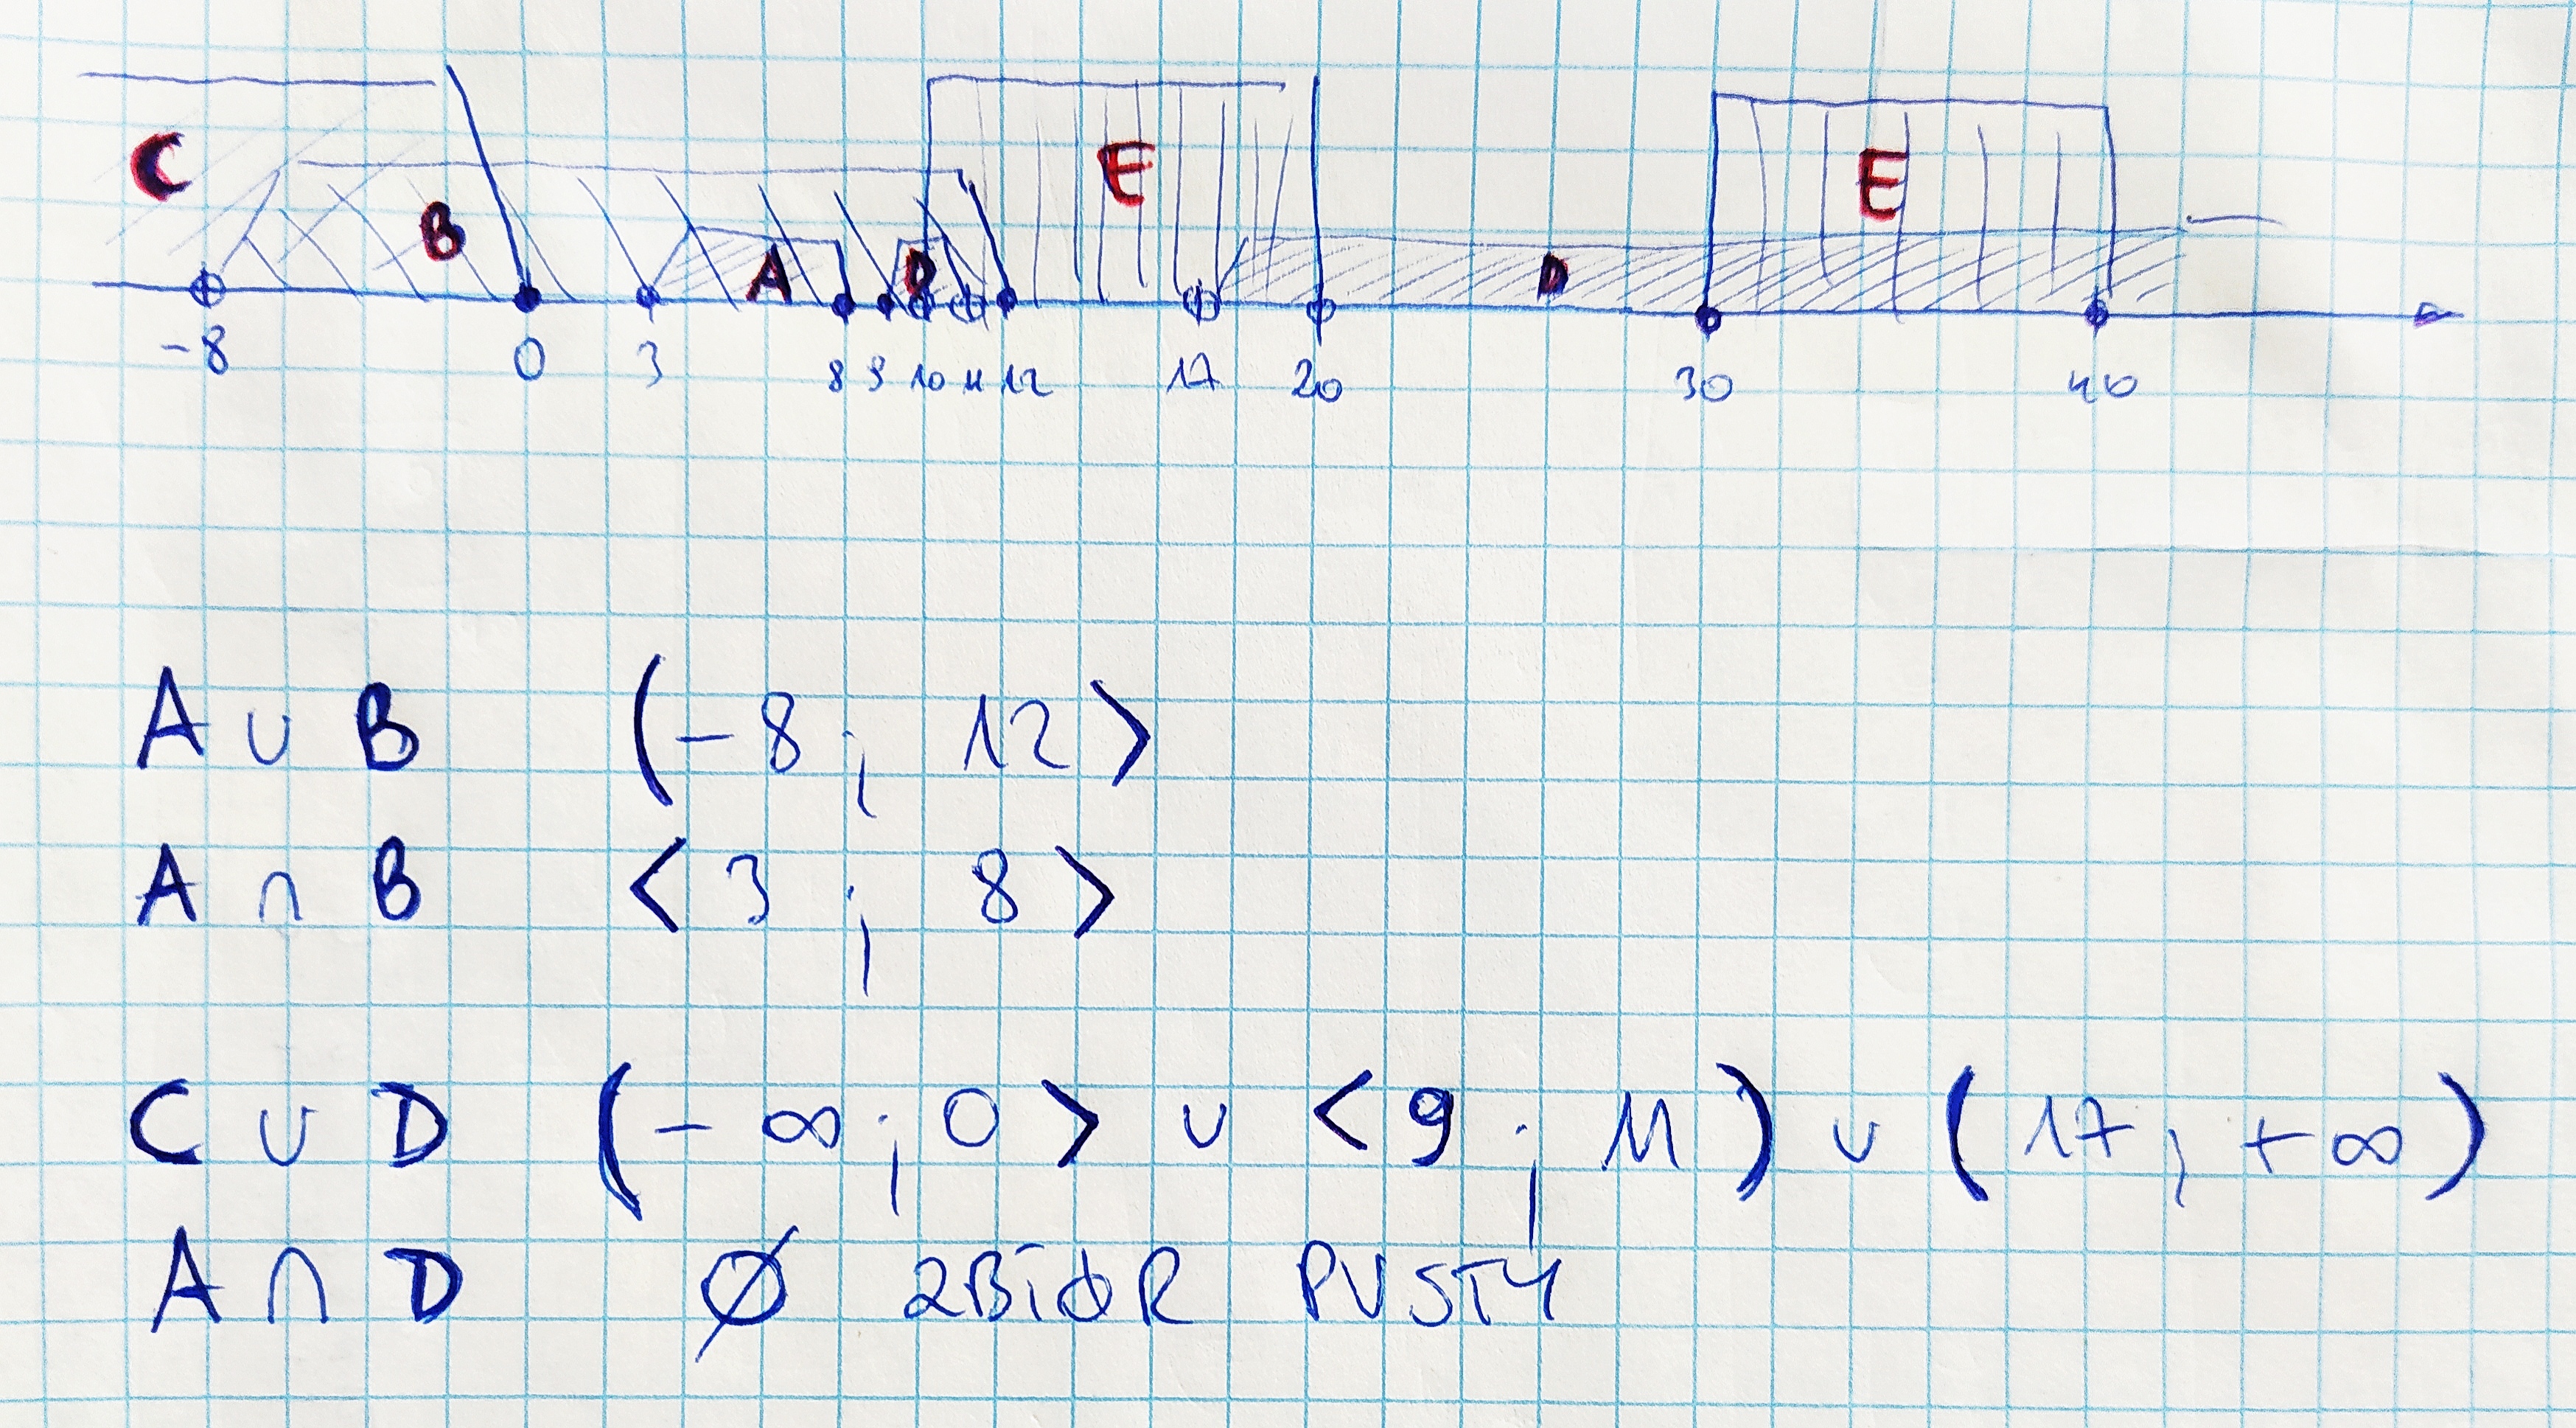 C B A D E D E
-8 0 3 8 9 10 11 12 17 20 30 40
A ∪ B (-8; 12>
A ∩ B <3; 8>
C ∪ D (-∞; 0> ∪ <9; 11) ∪ (17; +∞)
A ∩ D Ø ZBIÓR PUSTY